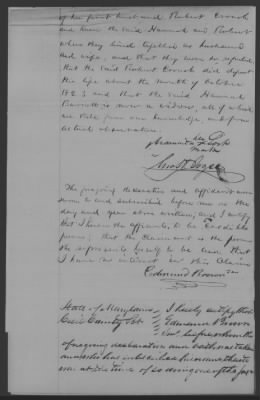 of her first husband Robert Crouch
and knew the said Hannah and Robert
when they lived together as husband
and wife, and that they were so reputed,
that the said Robert Crouch did depart
this life about the month of October
1823 and that the said Hannah
is now a widow, all of which
we state from our knowledge, and from
actual observation.
her
mark
The foregoing declaration and affidavit were
sworn to and subscribed before me on the
day and year above written; and I certify
that I know the affiants, to be credible
persons; that the claimant is the person
she represents herself to be and that
I have no interest in this claim
Edmund Brown
State of Maryland
Cecil County Sct
I hereby certify that
Edmund Brown
before whom the
foregoing declaration and oath was taken
and who has subscribed his name thereto
was at the time of so doing one of the Jus